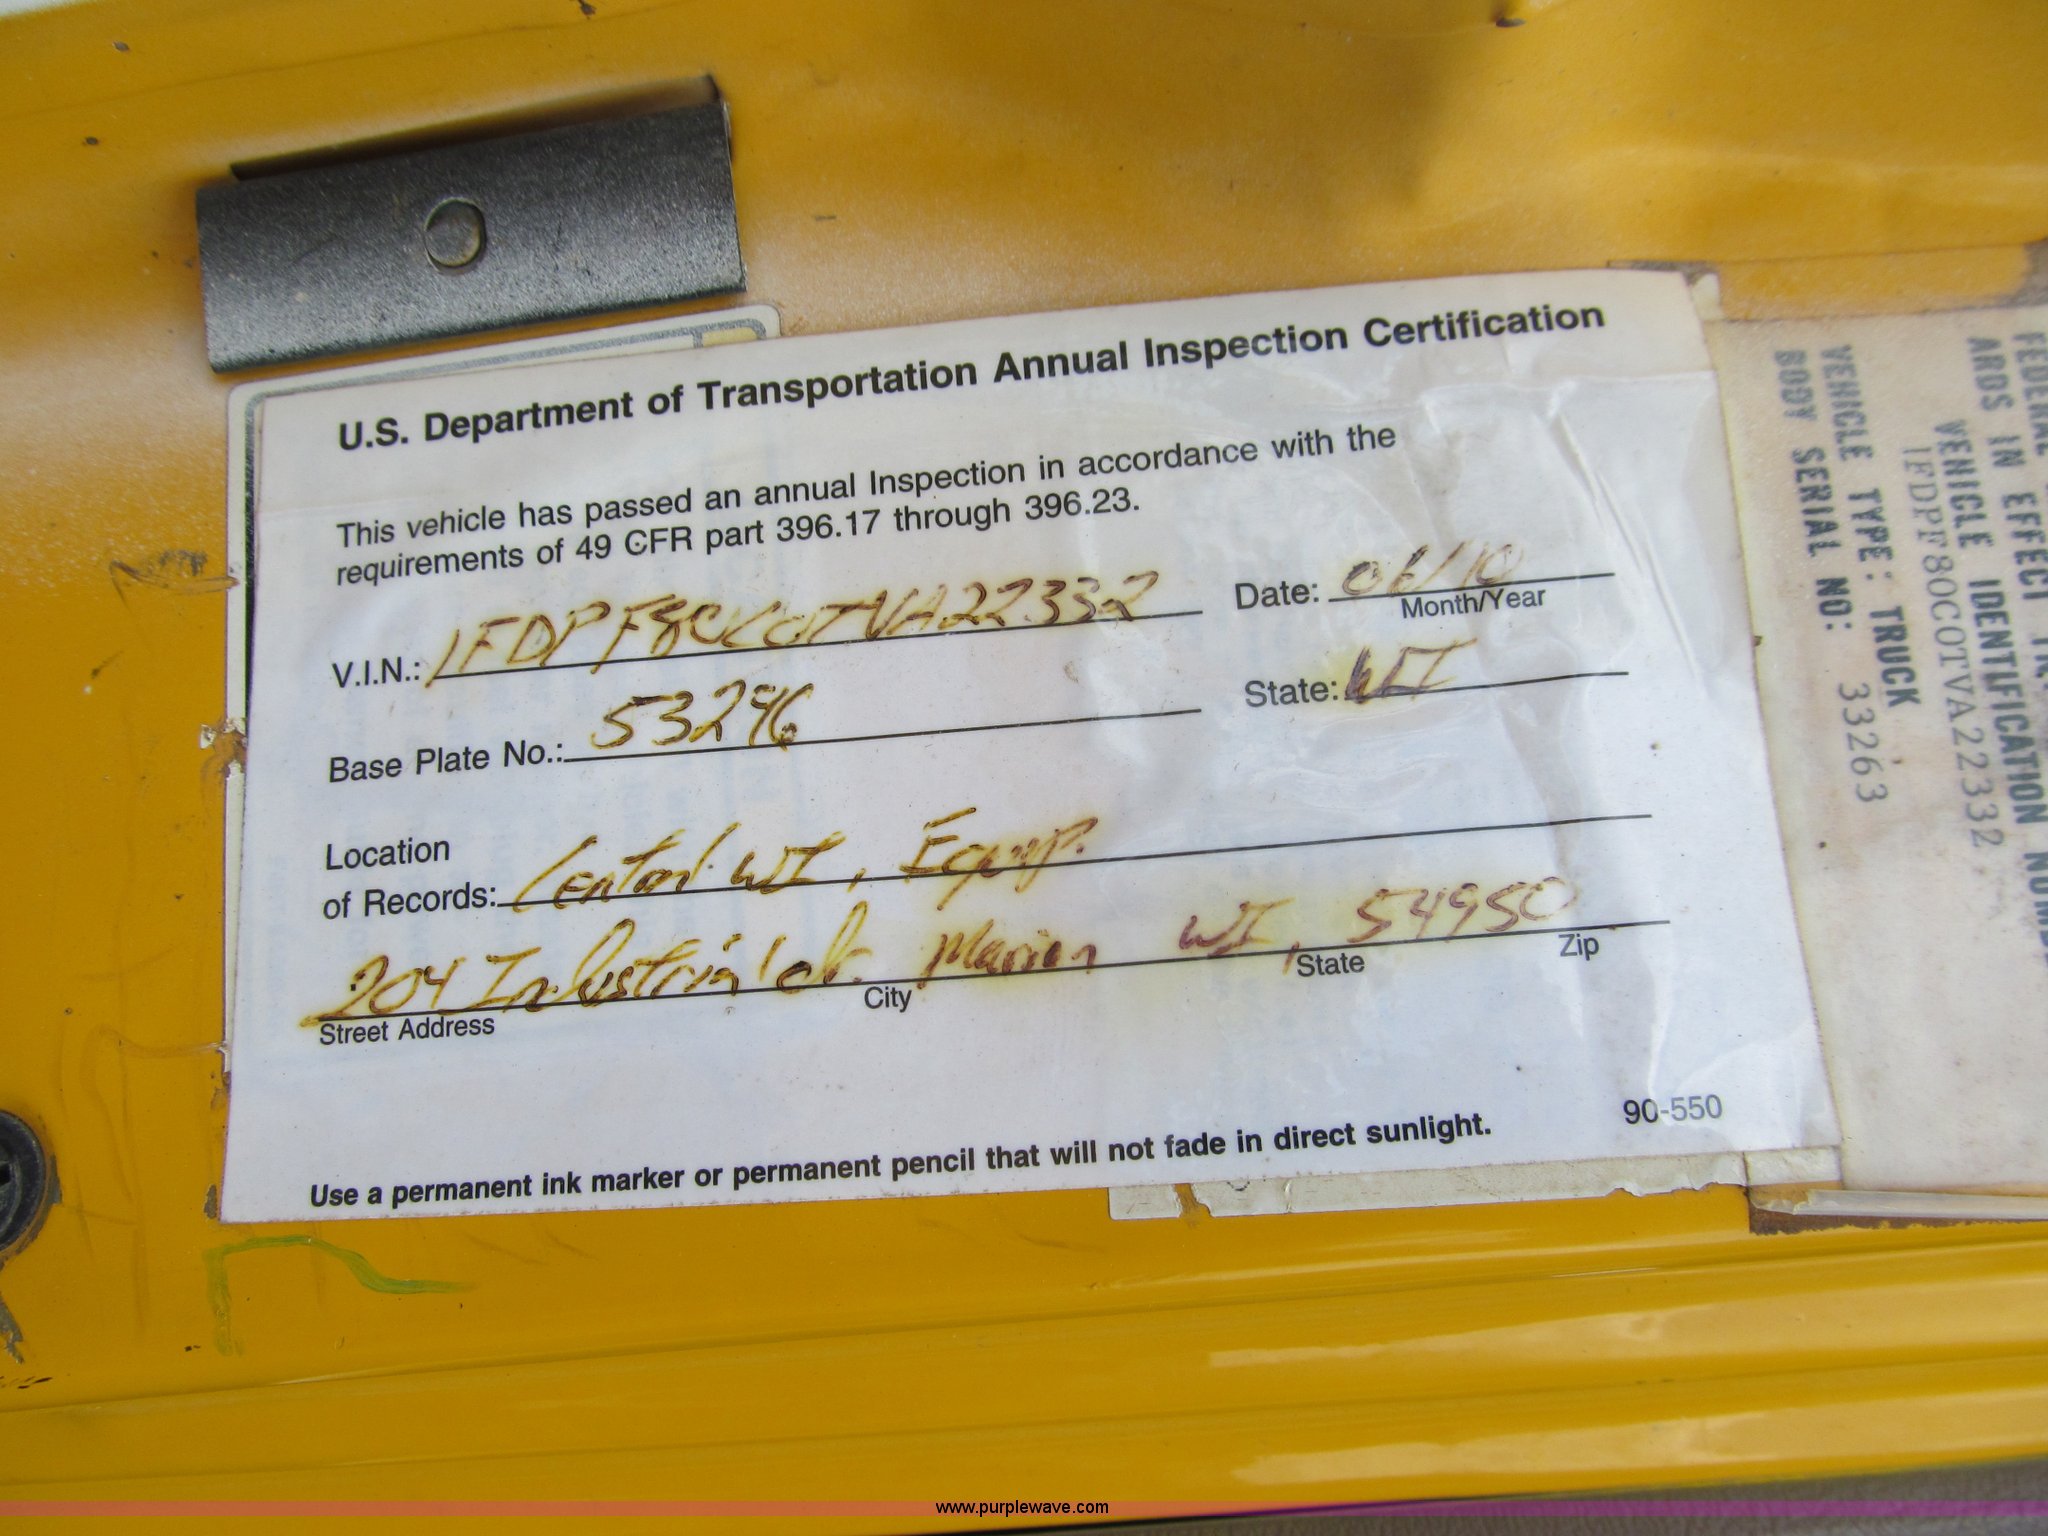 U.S. Department of Transportation Annual Inspection Certification
This vehicle has passed an annual Inspection in accordance with the
requirements of 49 CFR part 396.17 through 396.23.
V.I.N.: 1FDPF80C0TVA22332 Date: 06/10
Month/Year
Base Plate No.: 53296 State: WI
Location
of Records: Central WI, Equip.
204 Industrial dr. Marion WI, 54950
Street Address City State Zip
90-550
Use a permanent ink marker or permanent pencil that will not fade in direct sunlight.
FEDERAL
ARDS IN EFFECT
VEHICLE IDENTIFICATION
1FDPF80C0TVA22332
VEHICLE TYPE: TRUCK
BODY SERIAL NO: 33263
www.purplewave.com